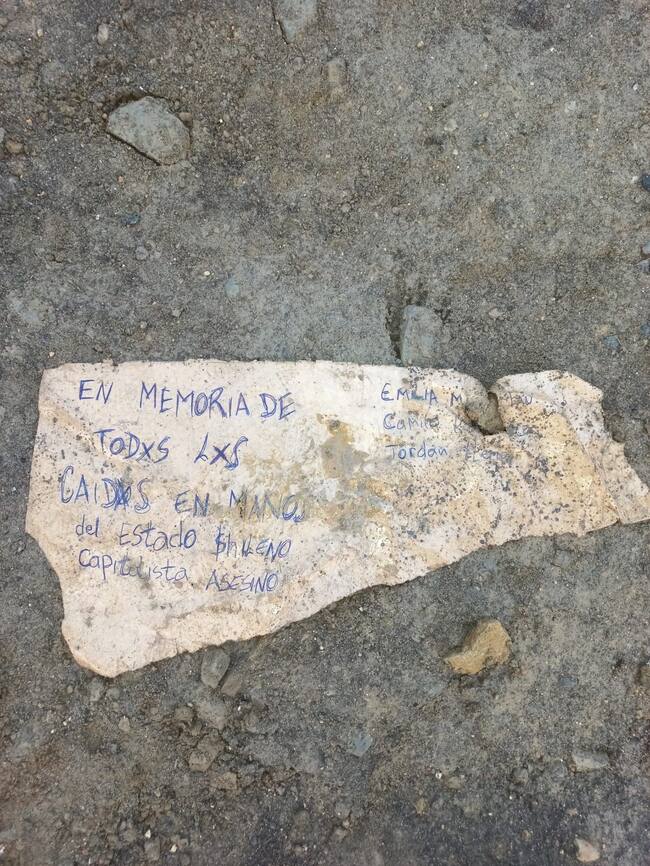 EN MEMORIA DE
TODXS LXS
CAIDXS EN MANOS
del Estado $hileno
Capitalista ASESINO
EMILIA
Camilo
Jordan